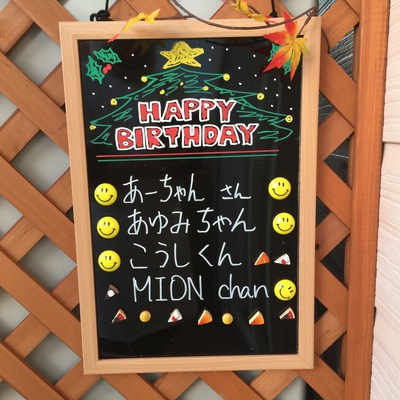 HAPPY
BIRTHDAY
あーちゃん さん
あゆみちゃん
こうしくん
MION chan